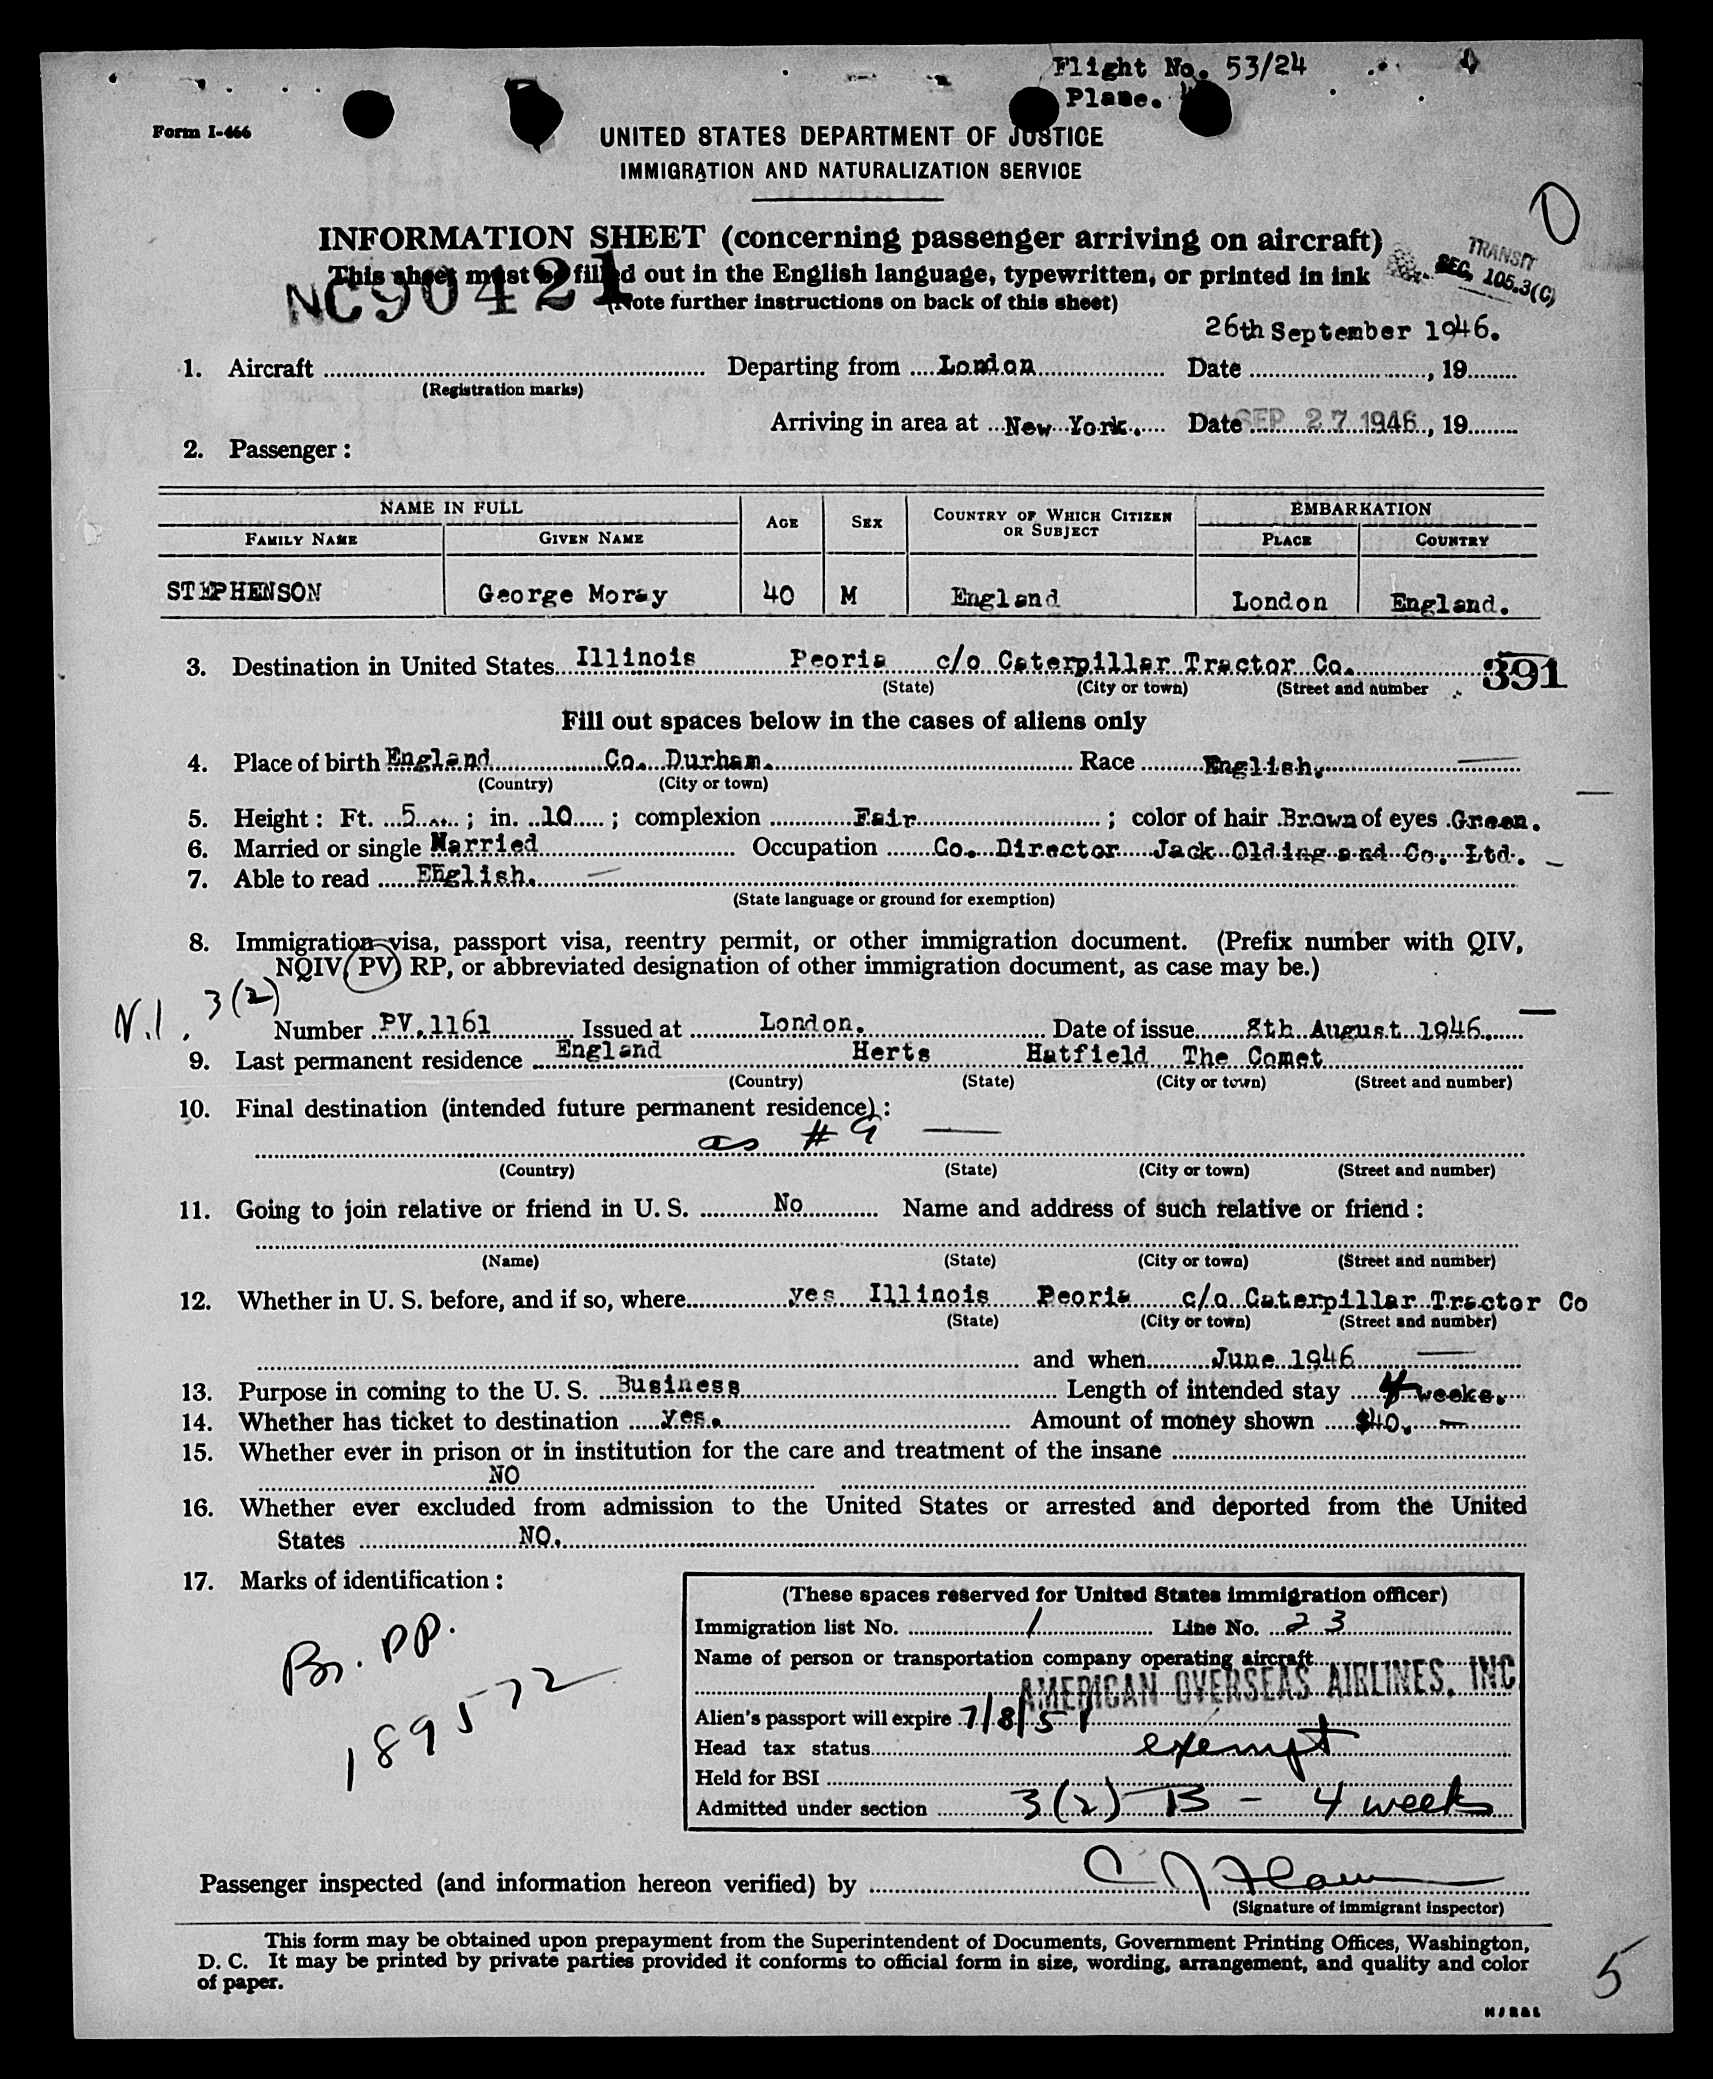 Flight No. 53/24
Plane.
Form I-466
UNITED STATES DEPARTMENT OF JUSTICE
IMMIGRATION AND NATURALIZATION SERVICE
INFORMATION SHEET (concerning passenger arriving on aircraft)
This sheet must be filled out in the English language, typewritten, or printed in ink
TRANSIT
SEC. 105.3(C)
NC90421
(Note further instructions on back of this sheet)
26th September 1946.
1. Aircraft Departing from London Date , 19
(Registration marks)
Arriving in area at New York. Date SEP 27 1946, 19
2. Passenger:
NAME IN FULL AGE SEX COUNTRY OF WHICH CITIZEN OR SUBJECT EMBARKATION
FAMILY NAME GIVEN NAME PLACE COUNTRY
STEPHENSON George Moray 40 M England London England.
3. Destination in United States Illinois Peoria c/o Caterpillar Tractor Co. 391
(State) (City or town) (Street and number
Fill out spaces below in the cases of aliens only
4. Place of birth England Co. Durham. Race English.
(Country) (City or town)
5. Height: Ft. 5 ; in. 10 ; complexion Fair ; color of hair Brown of eyes Green.
6. Married or single Married Occupation Co. Director Jack Olding and Co. Ltd.
7. Able to read English.
(State language or ground for exemption)
8. Immigration visa, passport visa, reentry permit, or other immigration document. (Prefix number with QIV,
NQIV, PV, RP, or abbreviated designation of other immigration document, as case may be.)
N.I. 3(2)
Number PV.1161 Issued at London. Date of issue 8th August 1946
9. Last permanent residence England Herts Hatfield The Comet
(Country) (State) (City or town) (Street and number)
10. Final destination (intended future permanent residence):
as #9
(Country) (State) (City or town) (Street and number)
11. Going to join relative or friend in U. S. No Name and address of such relative or friend:
(Name) (State) (City or town) (Street and number)
12. Whether in U. S. before, and if so, where yes Illinois Peoria c/o Caterpillar Tractor Co
(State) (City or town) (Street and number)
and when June 1946
13. Purpose in coming to the U. S. Business Length of intended stay 4 weeks.
14. Whether has ticket to destination yes. Amount of money shown $40.
15. Whether ever in prison or in institution for the care and treatment of the insane
NO
16. Whether ever excluded from admission to the United States or arrested and deported from the United
States NO.
17. Marks of identification:
Br. PP.
189572
(These spaces reserved for United States immigration officer)
Immigration list No. 1 Line No. 23
Name of person or transportation company operating aircraft
AMERICAN OVERSEAS AIRLINES, INC
Alien's passport will expire 7/8/51
Head tax status exempt
Held for BSI
Admitted under section 3(2) B - 4 weeks
Passenger inspected (and information hereon verified) by
(Signature of immigrant inspector)
This form may be obtained upon prepayment from the Superintendent of Documents, Government Printing Offices, Washington,
D. C. It may be printed by private parties provided it conforms to official form in size, wording, arrangement, and quality and color
of paper.
5